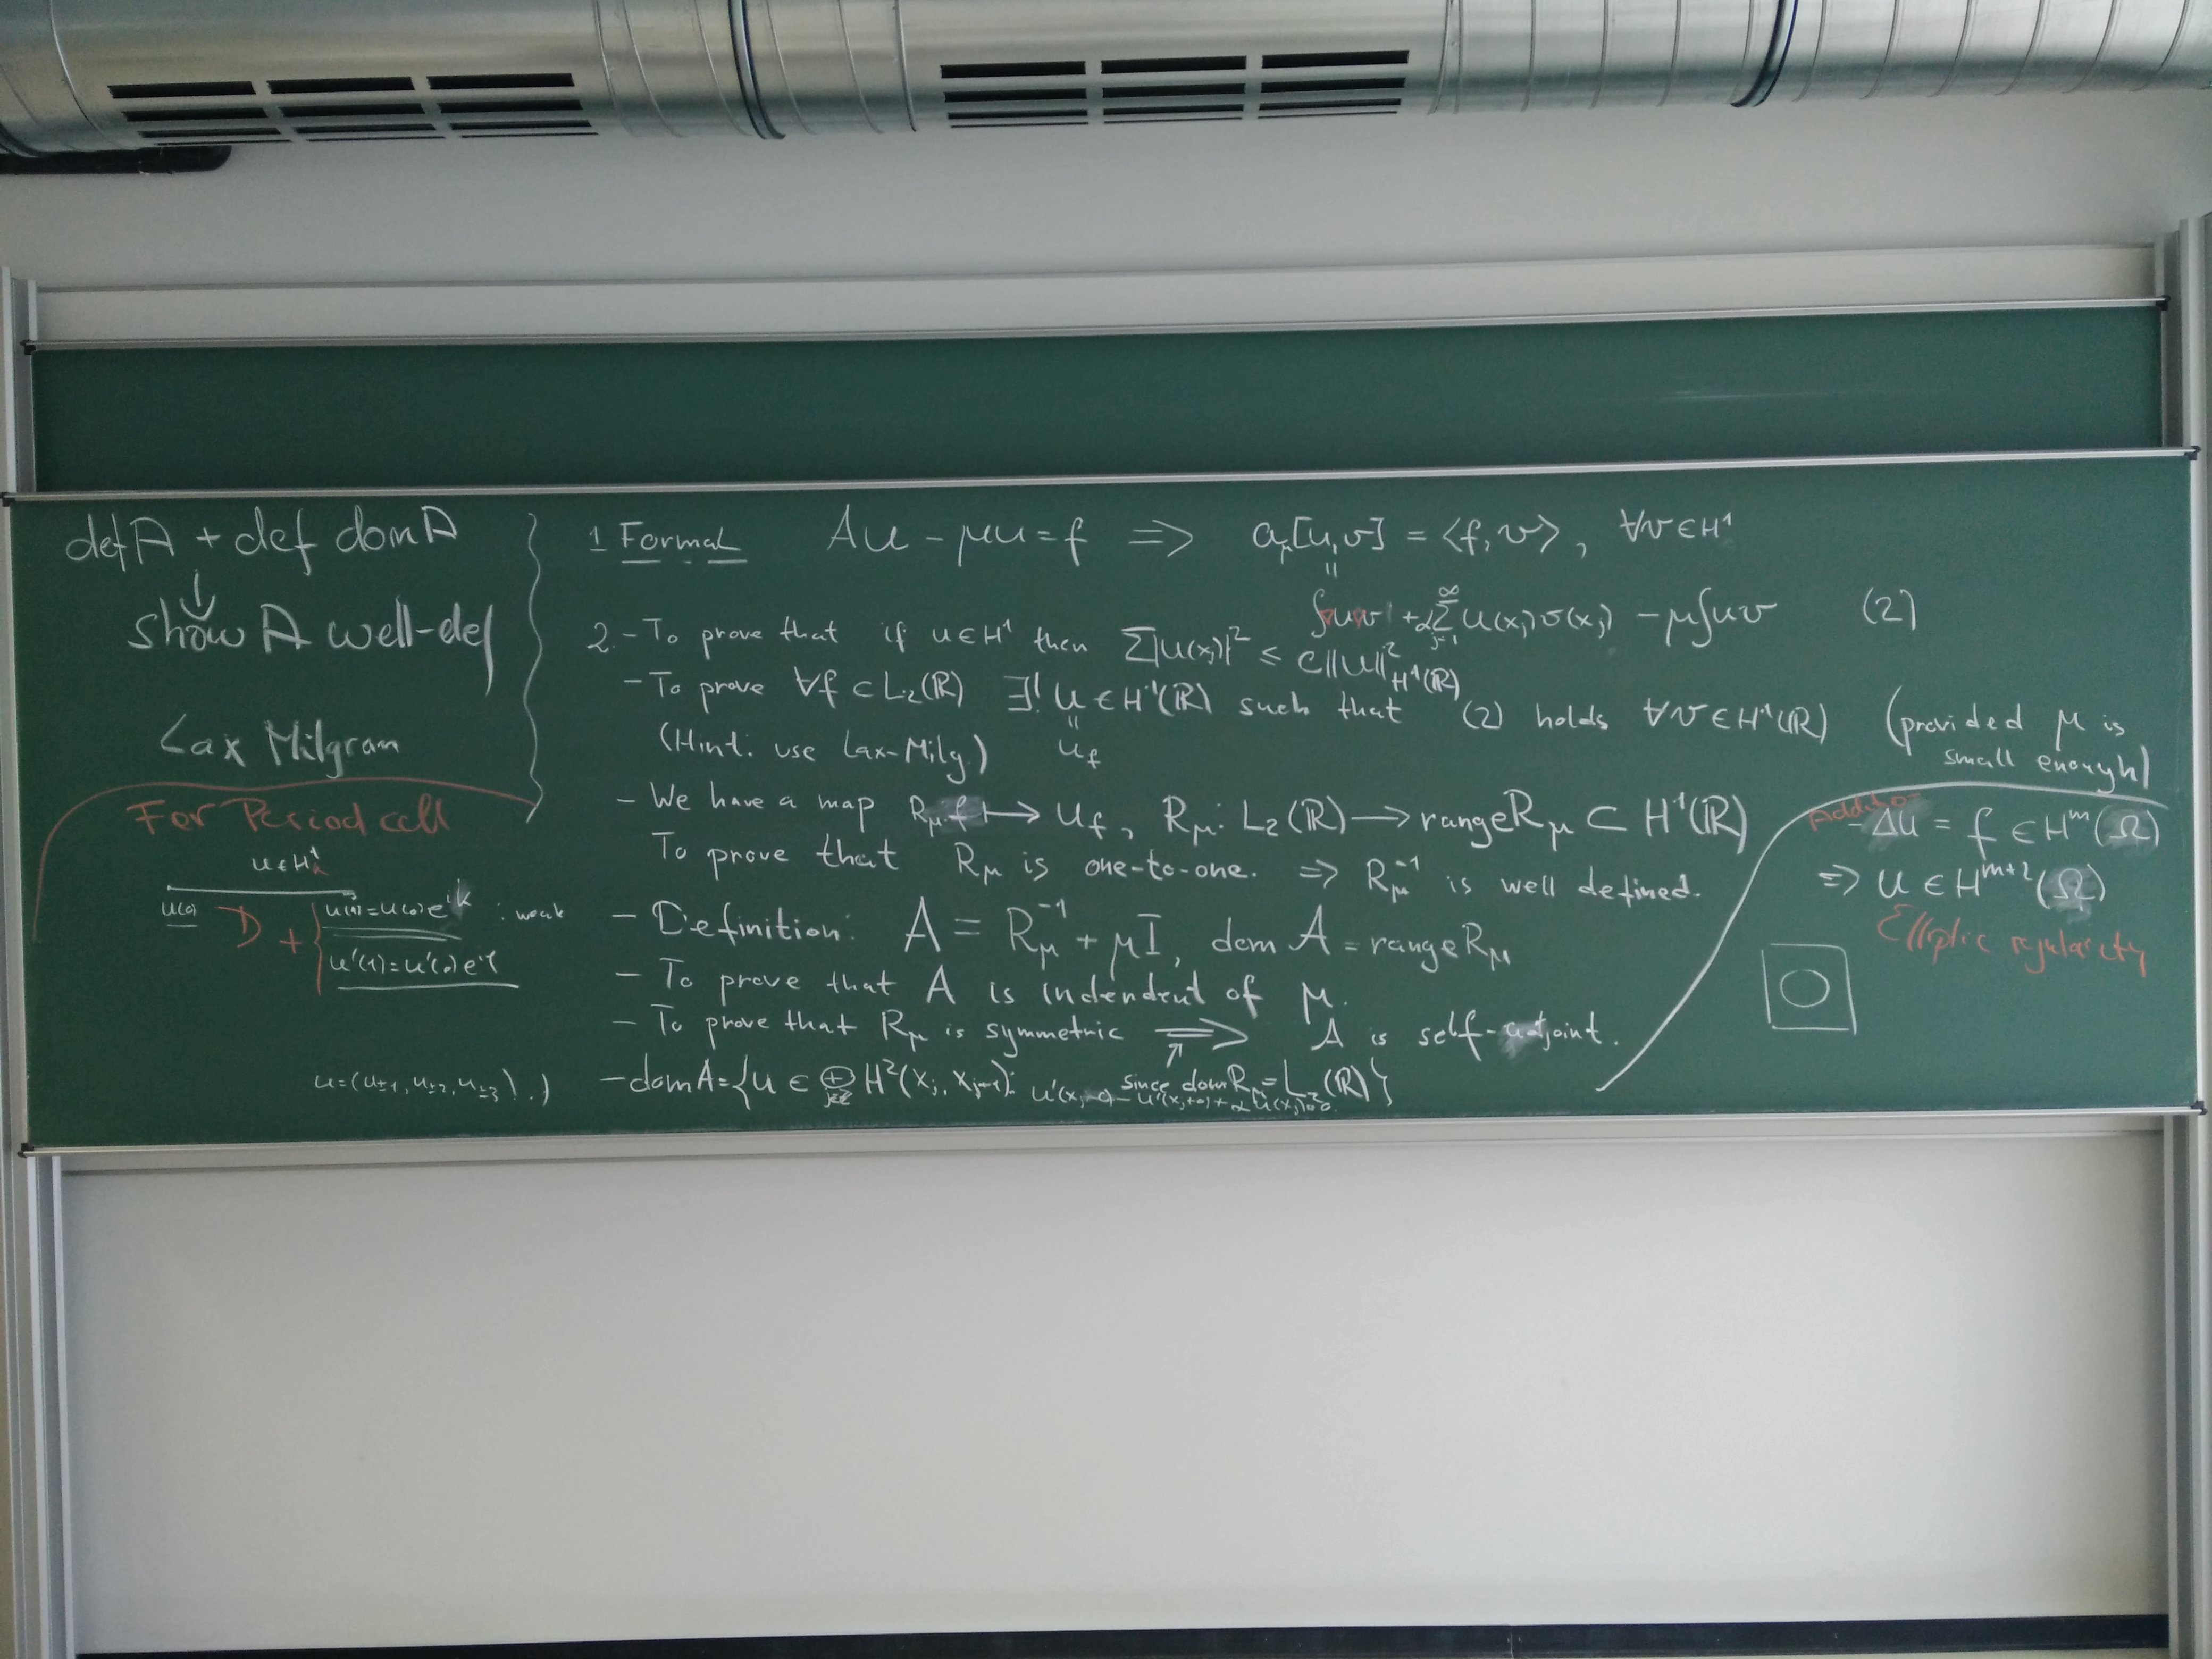 def A + def dom A
↓
show A well-def
Lax Milgram
For Period cell
u∈H¹
u(0)
D + { u(1)=u(0)e^{ik} : weak
u'(1)=u'(0)e
u=(u±1, u±2, u±3, ..)
1 Formal Au - μu = f ⟹ aμ[u,v] = ⟨f,v⟩, ∀v∈H¹
= ∫u'v' + α∑_{j=1}^∞ u(xj)v(xj) - μ∫uv (2)
2. - To prove that if u∈H¹ then ∑|u(xj)|² ≤ C||u||²_{H¹(ℝ)}
- To prove ∀f ⊂ L₂(ℝ) ∃! u∈H¹(ℝ) such that (2) holds ∀v∈H¹(ℝ) (provided μ is
small enough)
(Hint: use Lax-Milg.) = u_f
- We have a map Rμ: f ↦ u_f, Rμ: L₂(ℝ) → range Rμ ⊂ H¹(ℝ)
To prove that Rμ is one-to-one. ⟹ Rμ⁻¹ is well defined.
- Definition: A = Rμ⁻¹ + μI, dom A = range Rμ
- To prove that A is indendent of μ.
- To prove that Rμ is symmetric ⟹ A is self-adjoint.
↗ since dom Rμ = L₂(ℝ)
- dom A = {u ∈ ⊕_{j∈ℤ} H²(xj, xj+1): u'(xj-0) - u'(xj+0) + αu(xj)=0}
-Δu = f ∈ H^m(Ω)
⟹ u ∈ H^{m+2}(Ω)
Elliptic regularity